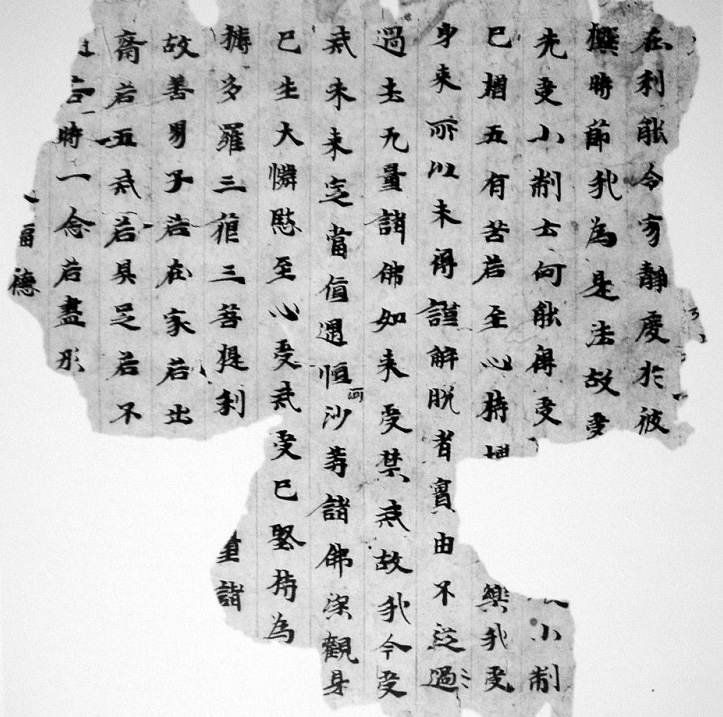 在利能令寂靜度於彼
樂時節我為是法故受
先受小制云何能得受小制
已增五有苦若至心持樂我受
身來所以未得謹解脫者實由不從過
過去无量諸佛如來受禁戒故我今受
戒未來定當值遇恒河沙等諸佛深觀身
已生大憐愍至心受戒受已堅持為
耨多羅三藐三菩提利量諸
故善男子若在家若出
齋若五戒若具足若不
時一念若盡形
福德